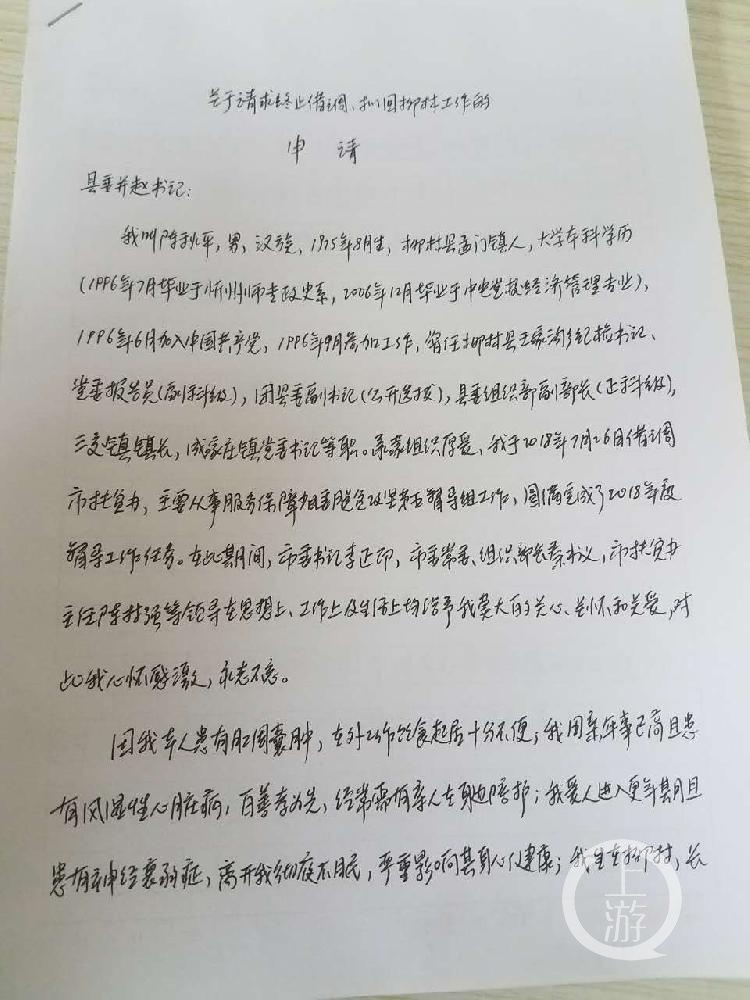 关于请求终止借调、拟回柳林工作的
申请
县委并赵书记：
我叫陈秋平，男，汉族，1975年8月生，柳林县孟门镇人，大学本科学历
（1996年7月毕业于忻州师专政史系，2006年12月毕业于中央党校经济管理专业），
1996年6月加入中国共产党，1996年9月参加工作，曾任柳林县王家沟乡纪检书记、
党委报告员（副科级），团县委副书记（公开选拔），县委组织部副部长（正科级），
三交镇镇长，成家庄镇党委书记等职。承蒙组织厚爱，我于2018年7月26日借调
市扶贫办，主要从事服务保障省委脱贫攻坚第五督导组工作，圆满完成了2018年度
督导工作任务。在此期间，市委书记李正印，市委常委、组织部长秦书义，市扶贫办
主任陈林强等领导在思想上、工作上及生活上均给予我莫大的关心、关怀和关爱，对
此我心怀感激，永志不忘。
因我本人患有肛周囊肿，在外工作饮食起居十分不便；我因亲年事已高且患
有风湿性心脏病，百善孝为先，经常需有亲人在身边陪护；我爱人进入更年期且
患有神经衰弱症，离开我彻夜不眠，严重影响其身心健康；我生在柳林，长
上游